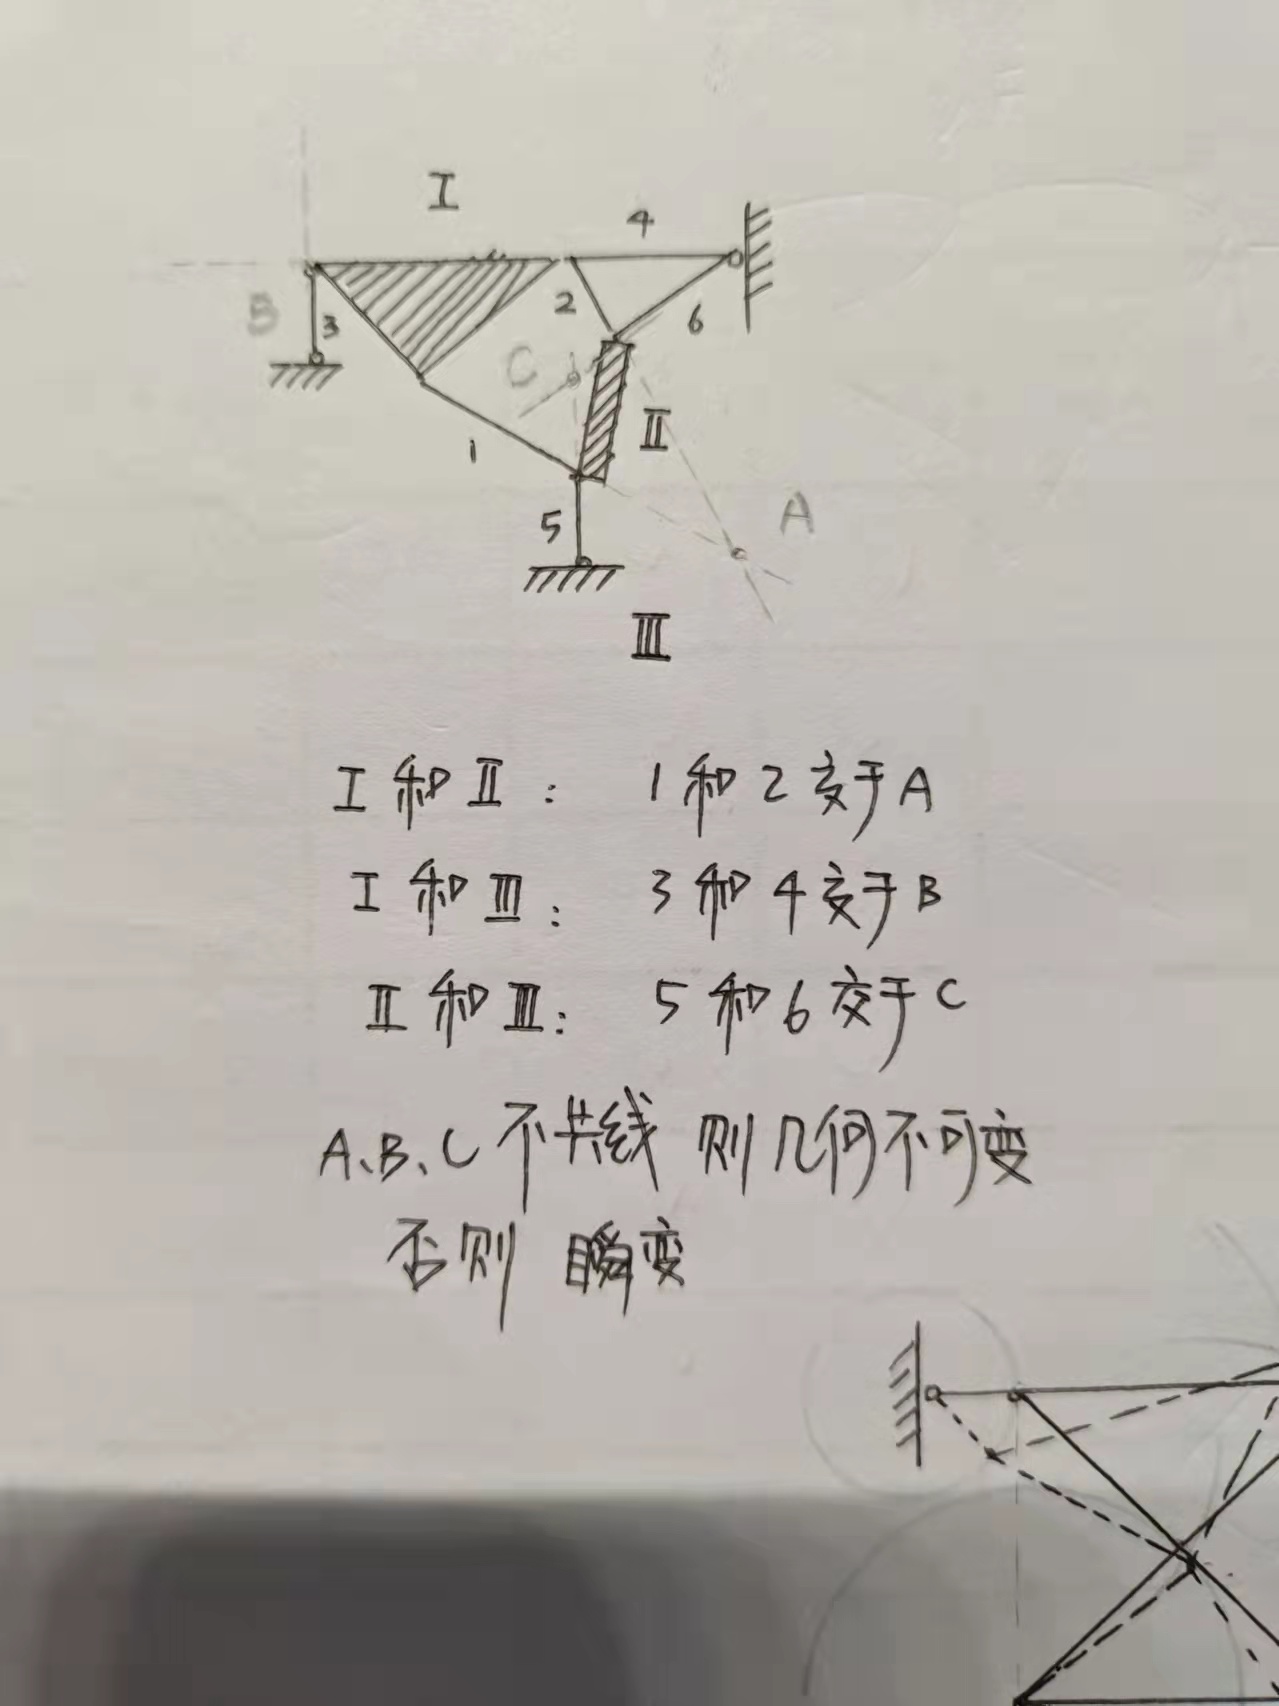 I
4
B
3
2
6
C
II
1
A
5
III
I和II: 1和2交于A
I和III: 3和4交于B
II和III: 5和6交于C
A、B、C不共线 则几何不可变
否则 瞬变